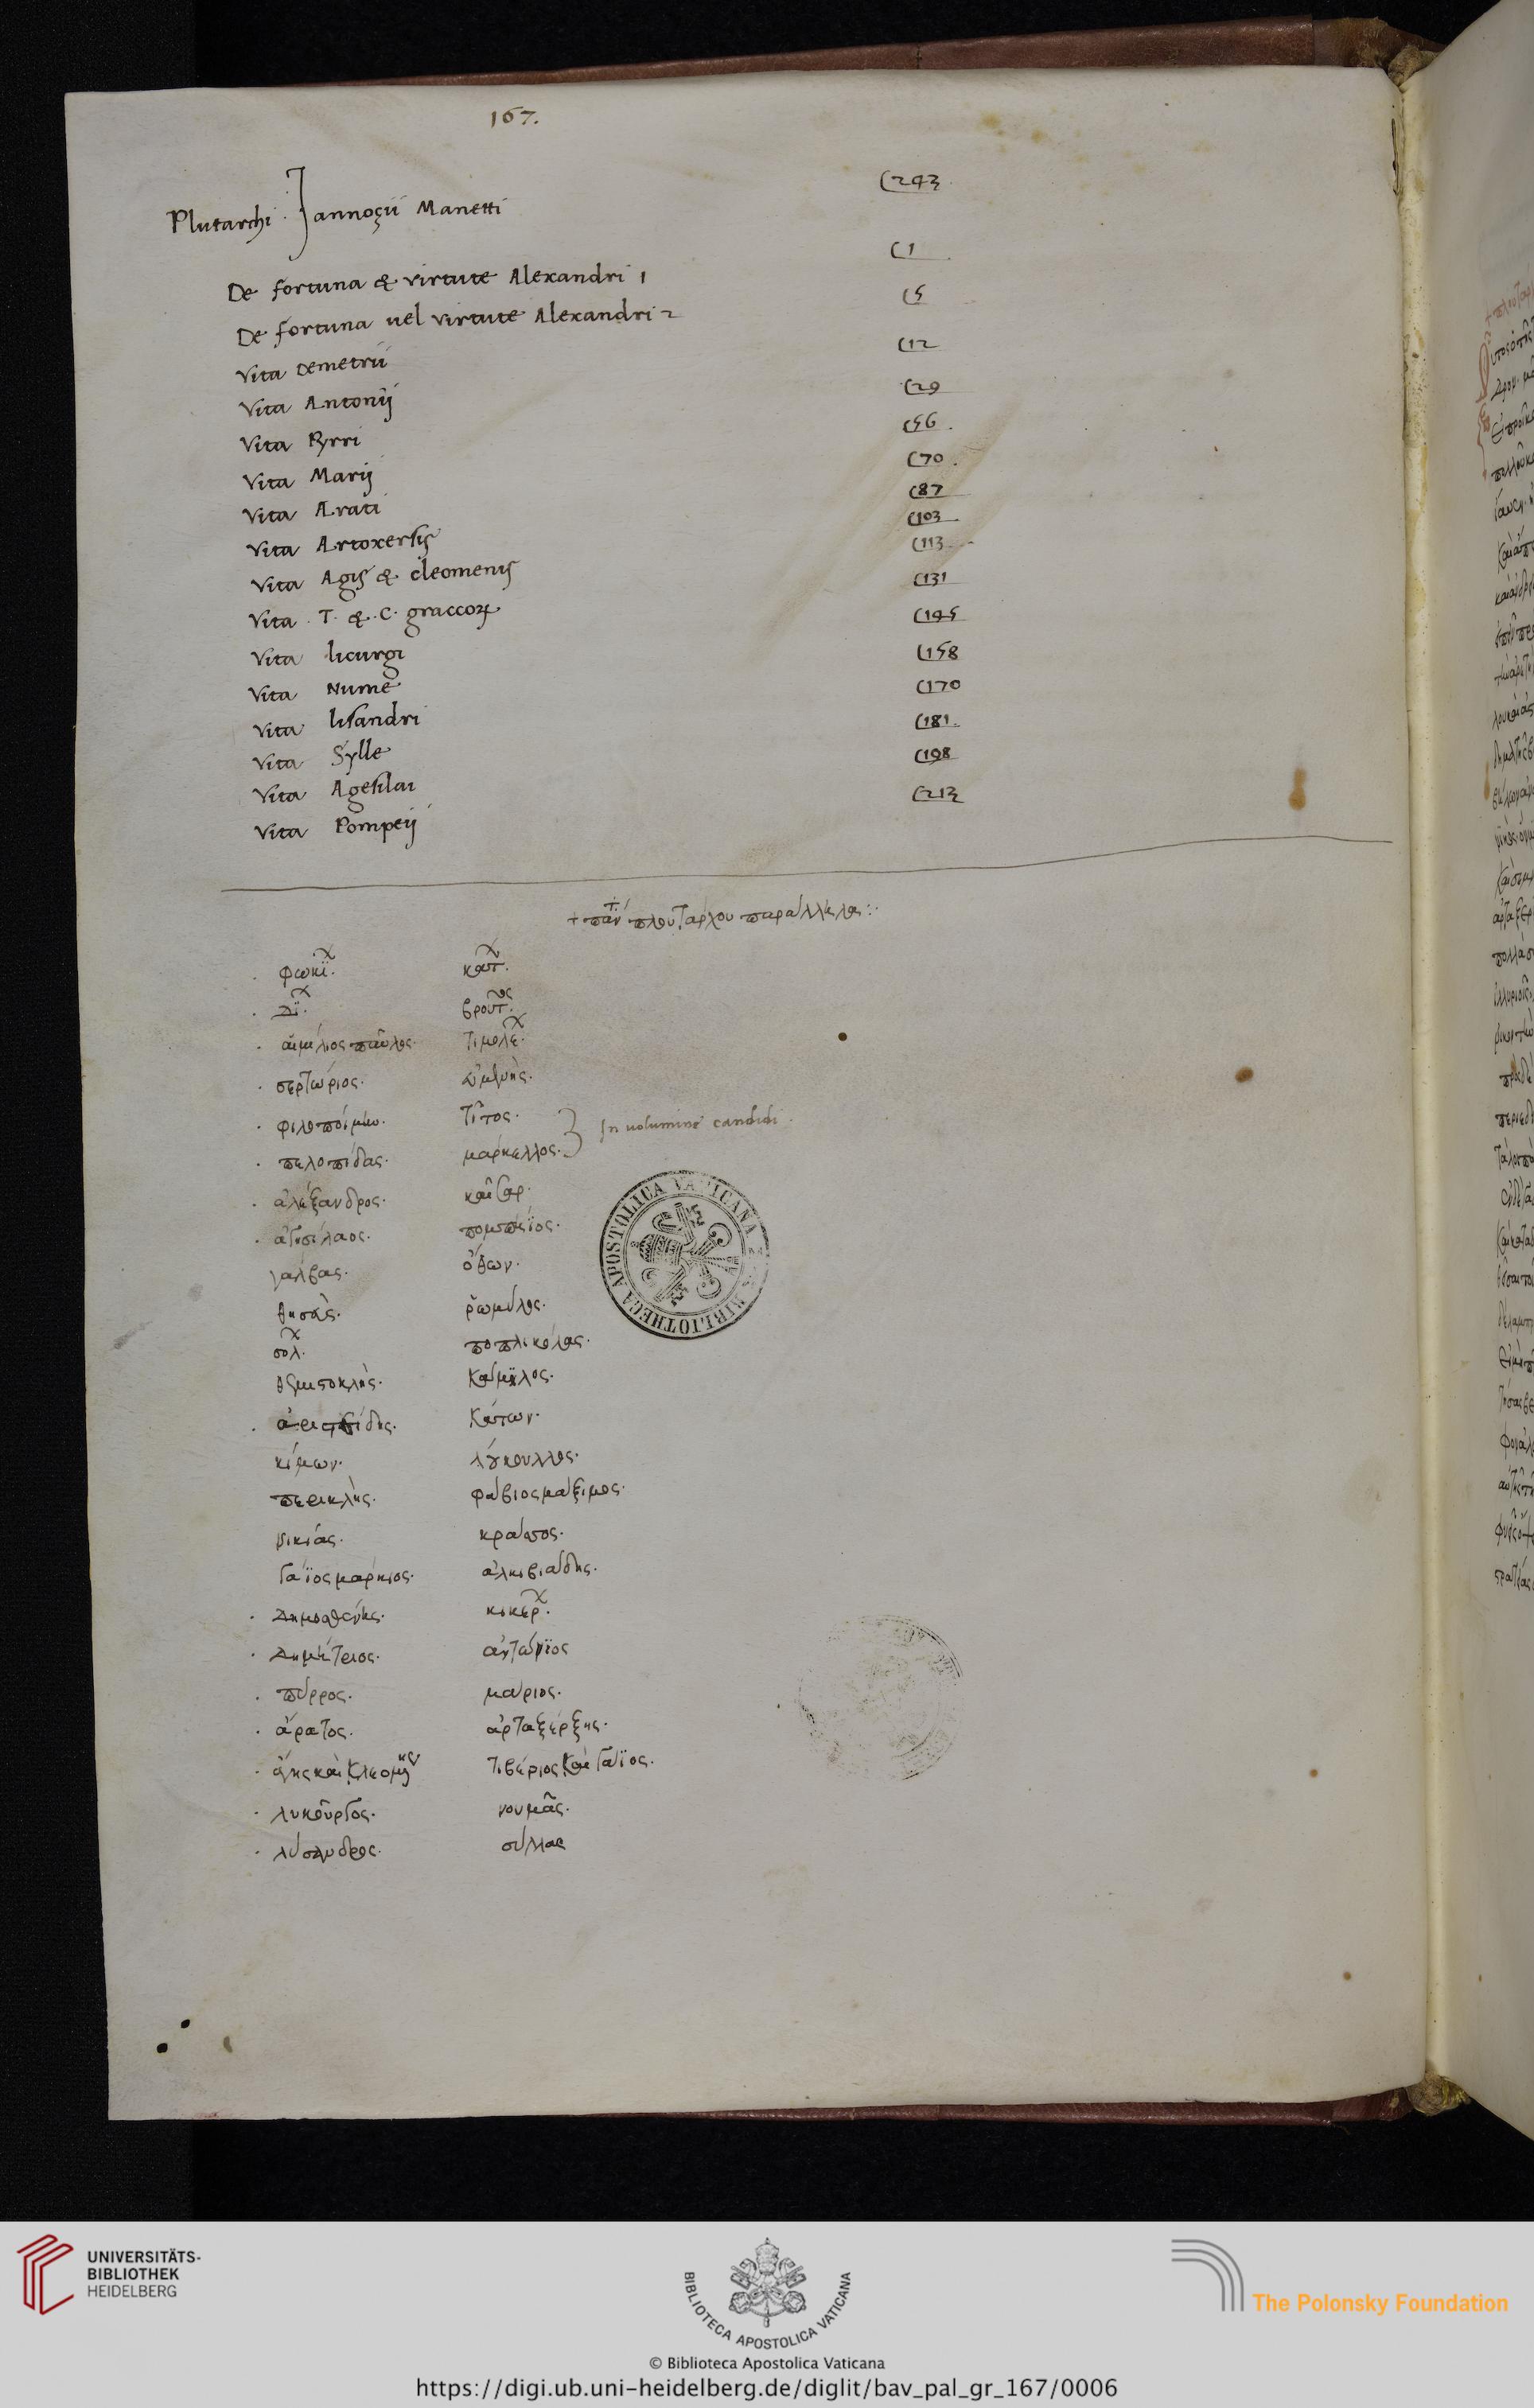 167.
Plutarchi . Jannoçii Manetti C 243
De fortuna & virtute Alexandri 1 C 1
De fortuna uel virtute Alexandri 2 C 5
Vita Demetrii C 12
Vita Antonij C 29
Vita Pyrri C 56
Vita Marij C 70
Vita Arati C 87
Vita Artoxersis C 103
Vita Agis & cleomenis C 113
Vita T. & C. graccoꝝ C 131
Vita licurgi C 145
Vita Nume C 158
Vita lisandri C 170
Vita Sylle C 181
Vita Agesilai C 198
Vita Pompeij C 213
πλουτάρχου παράλληλα
φωκί. κάτ.
δί. βροῦτος.
αἰμίλιος παῦλος. τιμολέ.
σερτώριος. εὐμένης.
φιλοποίμην. τίτος.
In volumine candidi
πελοπίδας. μάρκελλος.
ἀλέξανδρος. καῖσαρ.
ἀγησίλαος. πομπήϊος.
γάλβας. ὄθων.
θησεὺς. ῥωμύλος.
σόλ. ποπλικόλας.
θεμιστοκλῆς. κάμιλλος.
ἀριστείδης. κάτων.
κίμων. λούκουλλος.
περικλῆς. φάβιος μάξιμος.
νικίας. κράσσος.
γάϊος μάρκιος. ἀλκιβιάδης.
δημοσθένης. κικέρ.
δημήτριος. ἀντώνϊος
πύρρος. μάριος.
ἄρατος. ἀρταξέρξης.
ἄγης καὶ κλεομένης τιβέριος καὶ γάϊος.
λυκοῦργος. νουμᾶς.
λύσανδρος. σύλλας
BIBLIOTHECA APOSTOLICA VATICANA
UNIVERSITÄTS-
BIBLIOTHEK
HEIDELBERG
BIBLIOTECA APOSTOLICA VATICANA
The Polonsky Foundation
© Biblioteca Apostolica Vaticana
https://digi.ub.uni-heidelberg.de/diglit/bav_pal_gr_167/0006